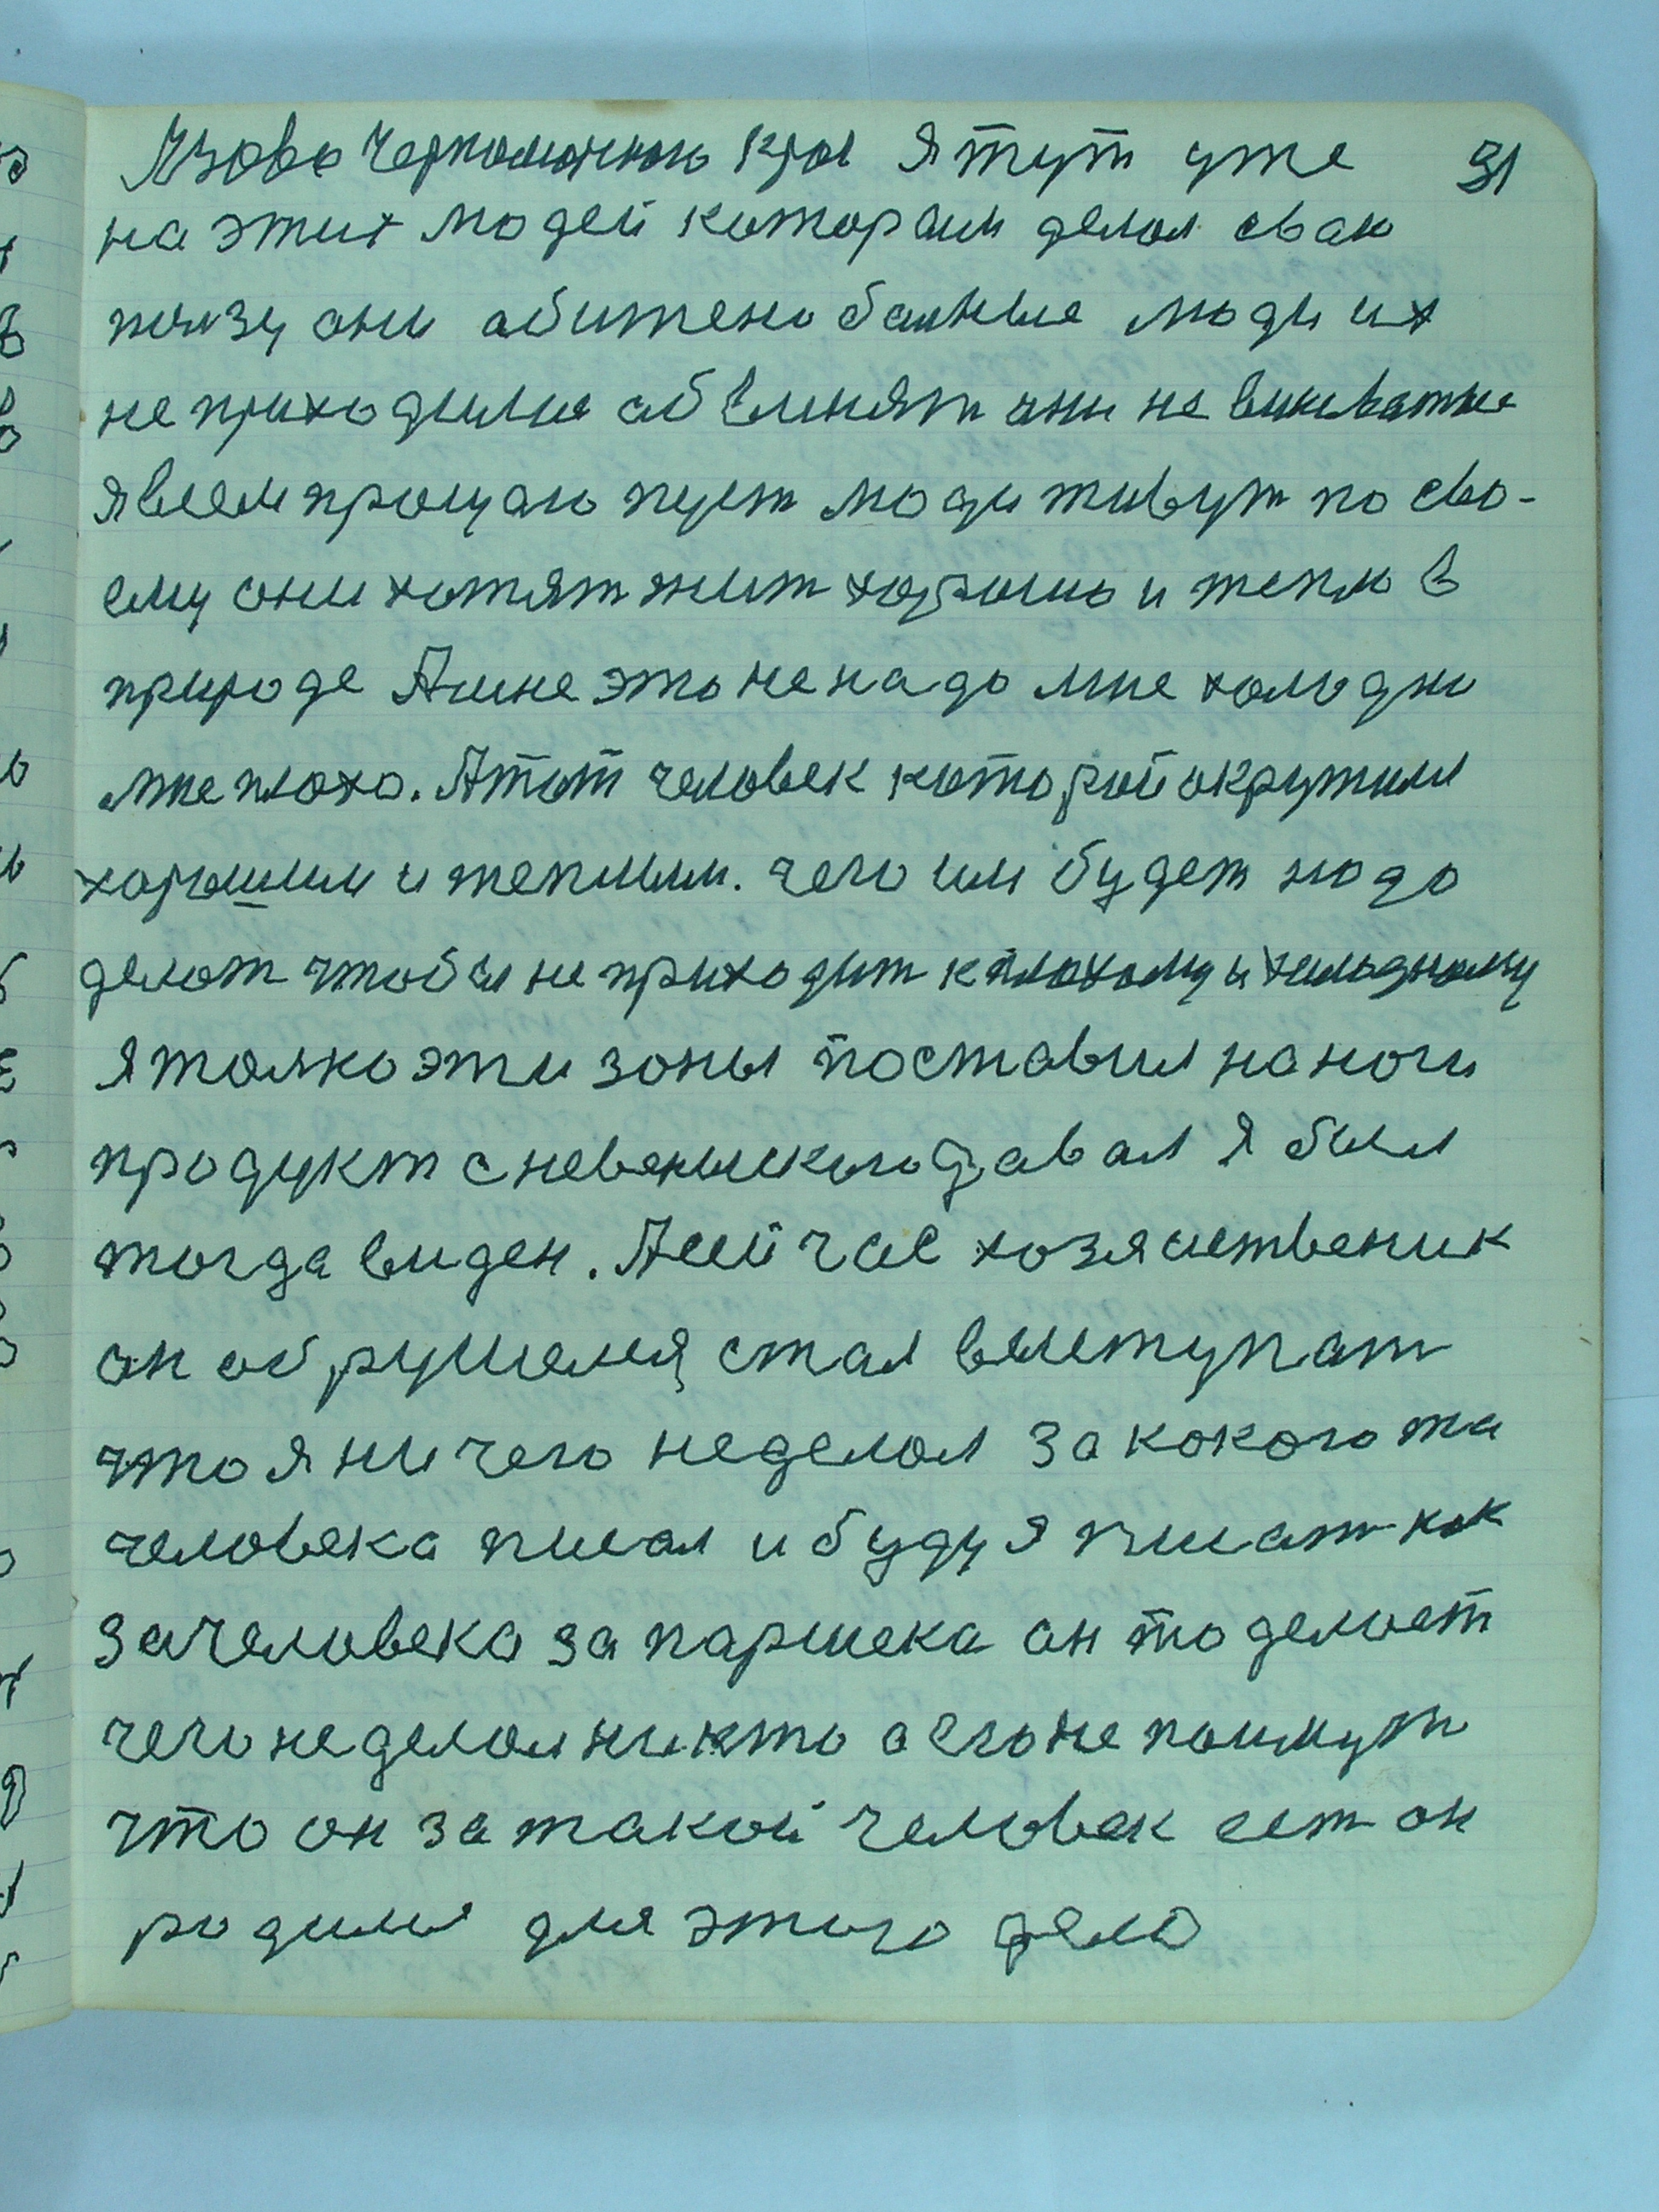 Азово Черноморский край Я тут уже 31
на этих людей которым делал сваю
ползу они обижено больные люди их
не приходился обвинят они не виноватые
я всем прощаю пуст люди живут по сво-
ему они хотят жит хорошо и тепло в
природе А мне это не надо мне холодно
мне плохо. А тот человек которой окружил
хорошим и теплым. чего им будет надо
делат чтобы не приходит к плохому и холодному
я толко эти зоны поставил на ноги
продукт с невеныского давал я был
тогда виден. А сейчас хозяиственик
он обрушелся, стал выступат
что я ни чего не делал за кокого та
человека писал и буду я писат как
за человека за паршека он то делает
чего не делал никто а его не поимут
что он за такой человек ест он
родился для этого дела